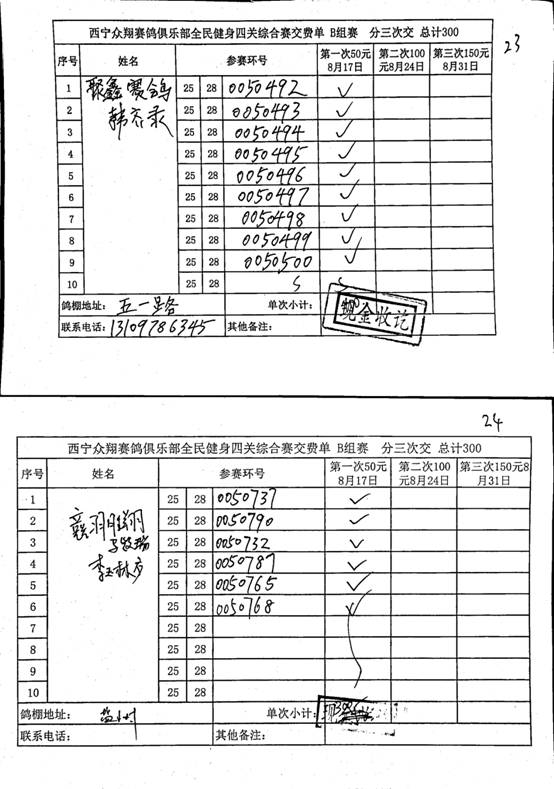 23
西宁众翔赛鸽俱乐部全民健身四关综合赛交费单 B组赛 分三次交 总计300
序号 姓名 参赛环号 第一次50元8月17日 第二次100元8月24日 第三次150元8月31日
1 聚鑫赛鸽 25 28 0050492 ✓
2 韩齐录 25 28 0050493 ✓
3 25 28 0050494 ✓
4 25 28 0050495 ✓
5 25 28 0050496 ✓
6 25 28 0050497 ✓
7 25 28 0050498 ✓
8 25 28 0050499 ✓
9 25 28 0050500 ✓
10 25 28
鸽棚地址: 五一路 单次小计:
现金收讫
联系电话: 13109786345 其他备注:
24
西宁众翔赛鸽俱乐部全民健身四关综合赛交费单 B组赛 分三次交 总计300
序号 姓名 参赛环号 第一次50元8月17日 第二次100元8月24日 第三次150元8月31日
1 25 28 0050737 ✓
2 羽翔 25 28 0050790 ✓
3 25 28 0050732 ✓
4 李玉林 25 28 0050787 ✓
5 25 28 0050765 ✓
6 25 28 0050768 ✓
7 25 28
8 25 28
9 25 28
10 25 28
鸽棚地址: 单次小计:
联系电话: 其他备注: